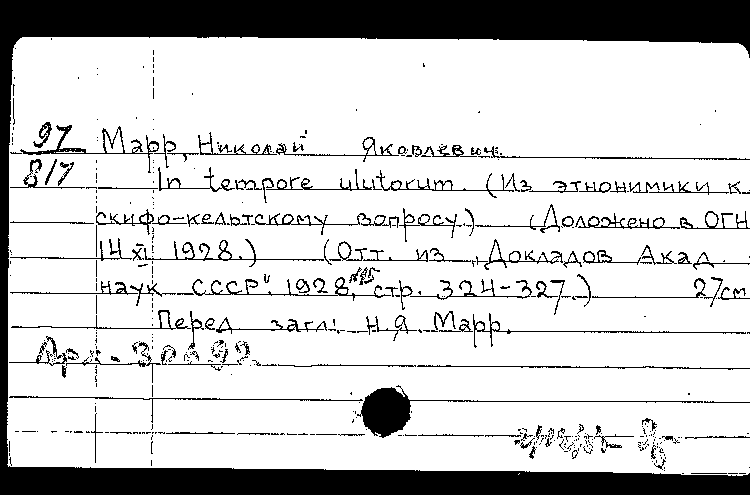 97
8/7
Марр, Николай Яковлевич.
In tempore ulutorum. (Из этнонимики к
скифо-кельтскому вопросу.) (Доложено в ОГН
14 XI 1928.) (Отт. из „Докладов Акад.
наук СССР". 1928, №15 стр. 324-327.) 27см
Перед загл: Н.Я. Марр.